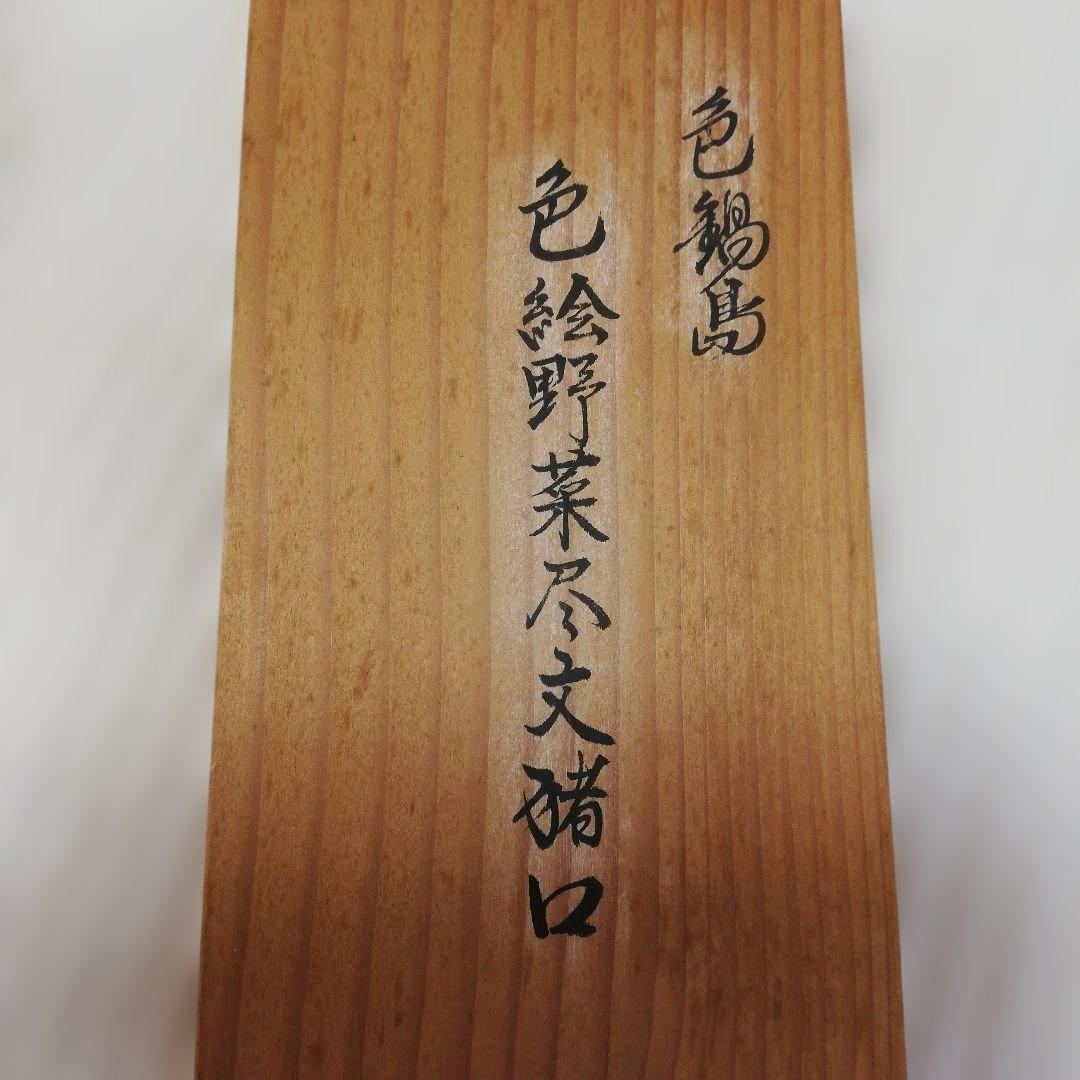 色鍋島
色絵野菜尽文猪口